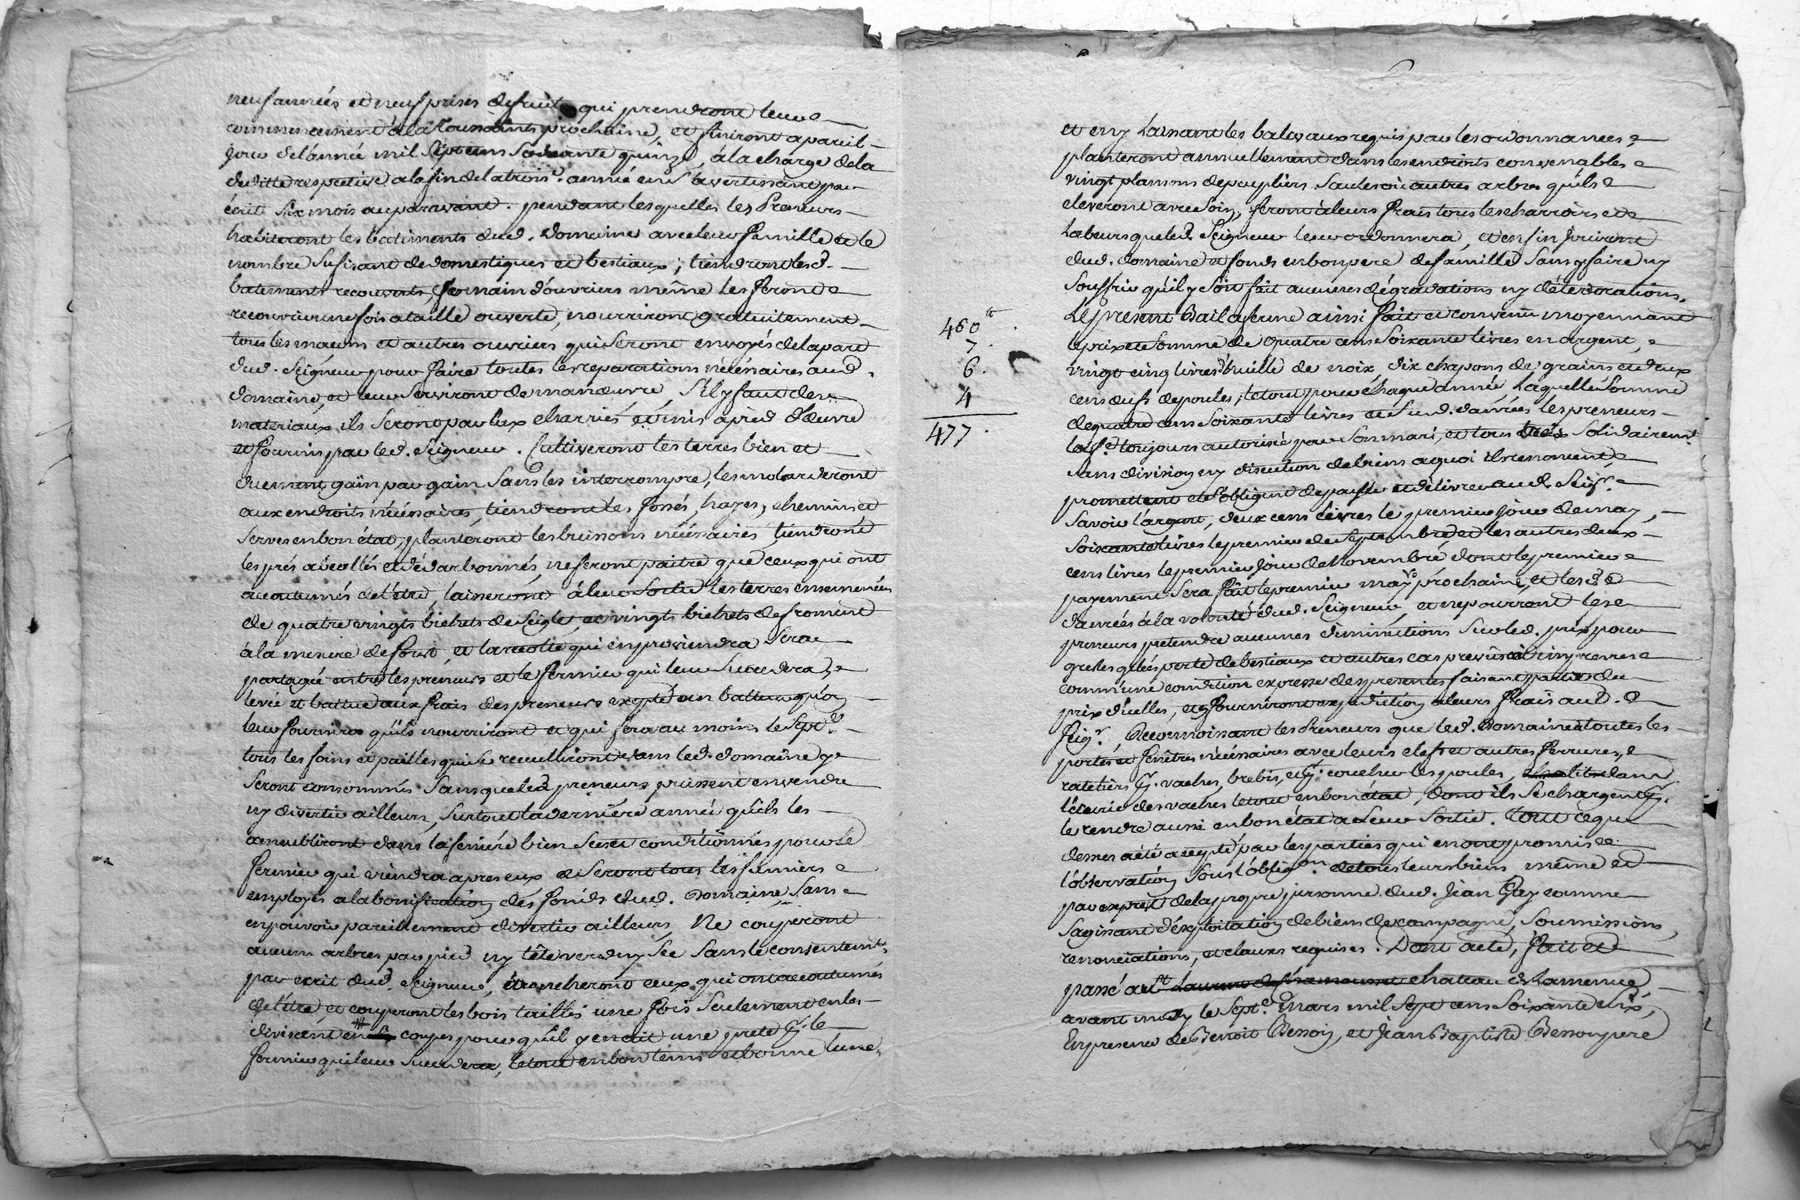 neuf années et neuf prises de fruits qui prendront leur
commencement à la Toussaints prochaine, et finiront a pareil
jour de l'année mil sept cens soixante quinze, à la charge de la
deditte respective a la fin de la trois.e année en s'avertissant par
écrit six mois auparavant. pendant lesquelles les Preneurs
habiteront les batiments dud. domaine avec leur famille et le
nombre sufisant de domestiques et bestiaux; tiendront lesd.
batiments recouverts, main d'ouvriers même les feront
recouvrir une fois a taille ouverte, nourriront gratuitement
tous les maçons et autres ouvriers qui seront envoyés de la part
dud. Seigneur pour faire toutes les reparations nécéssaires aud.
domaine, et leur serviront de manœuvre, s'il y faut des
materiaux ils seront par eux charriés et mis a pied d'œuvre
et fournis par led. Seigneur. Cultiveront les terres bien et
duement gain par gain sans les interrompre, les
aux endroits nécéssaires, tiendront les fossés, hayes, chemins et
serves en bon état, planteront les buissons nécéssaires tiendront
les prés et ne feront paitre que ceux qui ont
accoutumés de l'être, laisseront à leur sortie les terres ensemencées
de quatre vingts bichets de seigle, et vingts bichets de froment
à la mesure de et la recolte qui en proviendra sera
partagée entre les preneurs et le fermier qui leur succedera,
levée et battue aux frais des preneurs excepté un batteur qu'on
leur fournira qu'ils nourriront et qui fera au moins le
tous les foins et pailles qui se recuilliront dans led. domaine y
seront consommés sans que lesd. preneurs puissent en vendre
ny divertir ailleurs, surtout la derniere année qu'ils les
ameubliront dans la feniére bien secs et conditionnés pour le
fermier qui viendra apres eux et seront tous les fumiers
employés a la bonification des fonds dud. Domaine sans
en pouvoir pareillement divertir ailleurs, Ne couperont
aucun arbres par pied ny tête verd ny sec sans le consentement
par écrit dud. seigneur, ébrancheront ceux qui ont accoutumés
de l'être, et couperont les bois taillis une fois seulement en les
divisant en coupes pour qu'il y en ait une prete p.r le
fermier qui leur succedera, le tout en bon tems et bonne lune,
460tt.
7.
6.
4
477.
et en y laissant les balivaux requis par les ordonnances,
planteront annuellement dans les endroits convenables
vingt plansons de peupliers saules ou autres arbres qu'ils
eleveront avec soin, feront à leurs frais tous les charrois et
labeurs que led. Seigneur leur ordonnera, et enfin jouiront
dud. domaine et fonds en bon pere de famille sans y faire ny
souffrir qu'il y soit fait aucunes dégradations ny détériorations.
Le present bail a ferme ainsi fait et convenu moyennant
le prix et somme de quatre cens soixante livres en argent,
vingt cinq livres d'huille de noix, dix chapons de grains et deux
cens œufs de poules, le tout pour chaque année, Laquelle somme
de quatre cens soixante livres et susd. danrées les preneurs
lad. f.e toujours autorisée par son mari, et tous trois solidairem.t
sans division ny discution de biens a quoi ils renoncent,
promettent et s'obligent de payer et delivrer aud. Seig.r
Savoir l'argent, deux cens livres le premier jour de may,
soixante livres le premier de septembre et les autres deux
cens livres le premier jour de Novembre dont le premier
payement sera fait le premier may prochaine, et lesd.
danrées à la volonté dud. Seigneur, et ne pourront les
preneurs pretendre aucunes diminutions sur led. prix pour
grêles gelées perte de bestiaux et autres cas prevûs et imprevus
comme une condition expresse des presentes faisant partie du
prix d'icelles, et fourniront expedition à leurs frais aud.
Seig.r. Reconnoissant les Preneurs que led. Domaine a toutes les
portes et fenêtres nécéssaires avec leurs clefs et autres ferrures,
rateliers p.r vaches, brebis, et p.r coucher les poules, dans
l'écurie des vaches le tout en bon état, dont ils se chargent p.r
le rendre aussi en bon état a leur sortie. Tout ce que
dessus a été accepté par les parties qui en ont promis
l'observation sous l'oblig.on de tous leurs biens même
par exprès de la propre personne dud. Jean comme
s'agissant d'exploitation de biens de campagne, soumissions,
renonciations, et clauses requises. Dont acte, fait et
passé au chateau de
avant midy le sept.e mars mil sept cens soixante six,
En presence de Benoit Besson, et Jean Baptiste